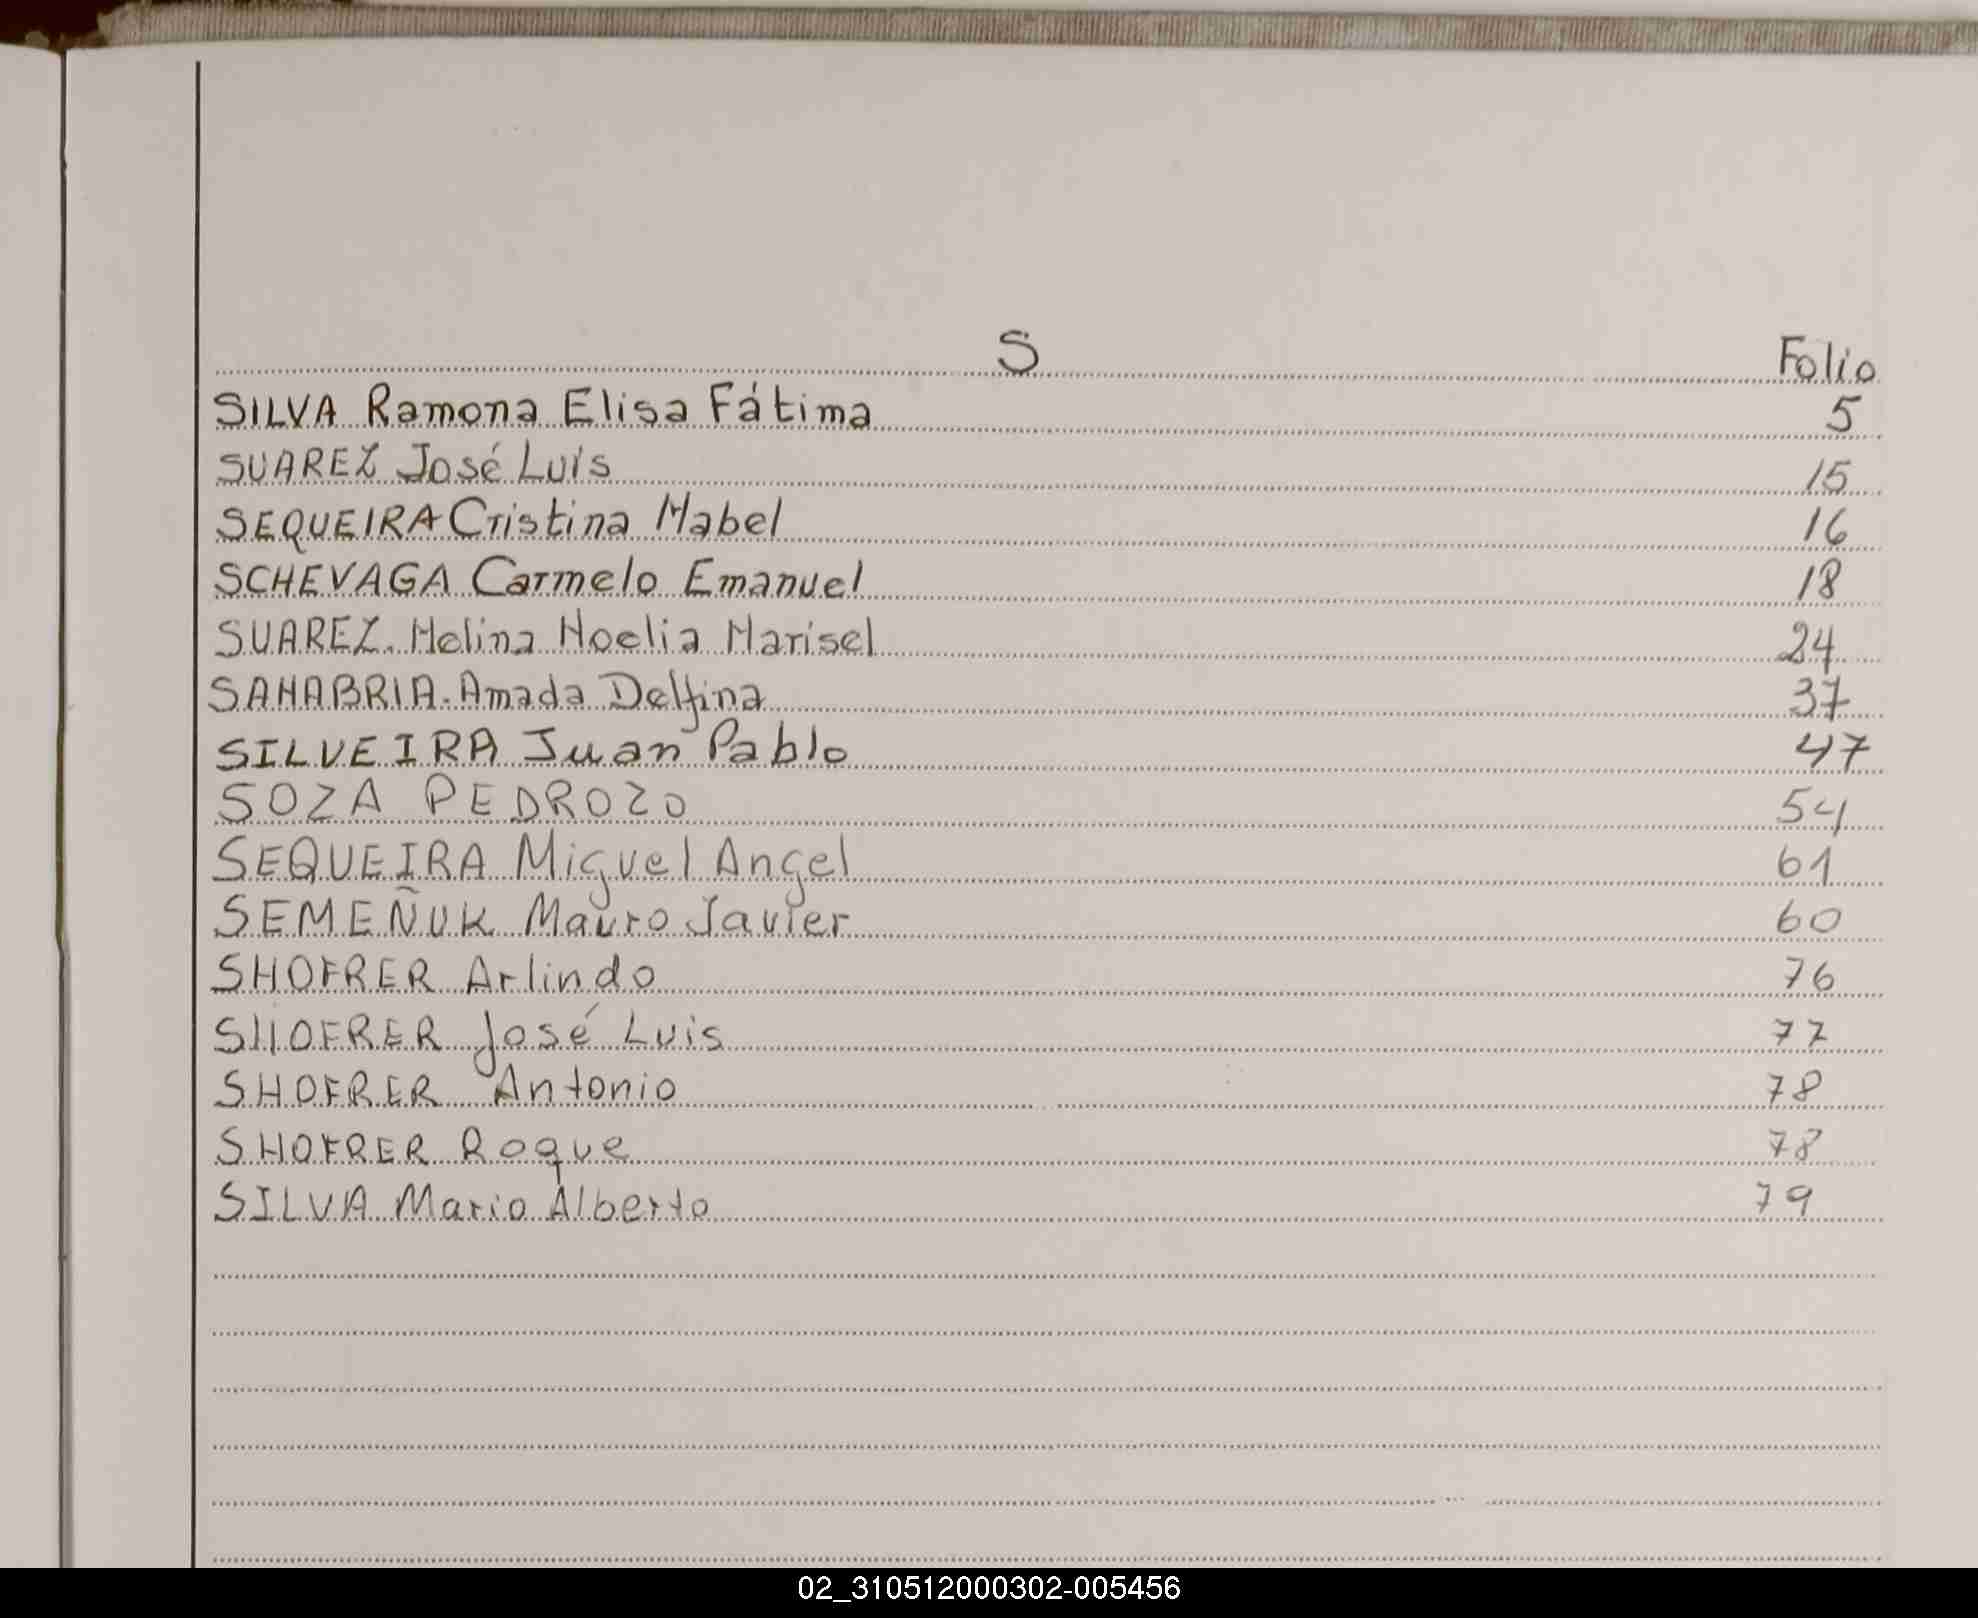 S Folio
SILVA Ramona Elisa Fátima 5
SUAREZ José Luis 15
SEQUEIRA Cristina Mabel 16
SCHEVAGA Carmelo Emanuel 18
SUAREZ. Melina Noelia Marisel 24
SANABRIA. Amada Delfina 37
SILVEIRA Juan Pablo 47
SOZA PEDROZO 54
SEQUEIRA Miguel Angel 61
SEMEÑUK Mauro Javier 60
SHOFRER Arlindo 76
SHOFRER José Luis 77
SHOFRER Antonio 78
SHOFRER Roque 78
SILVA Mario Alberto 79
02_310512000302-005456